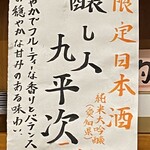 限定日本酒
醸し人
九平次
純米大吟醸
(愛知県)
やかでフルーティな香りとバランス
穏やかな甘みのある味わい。